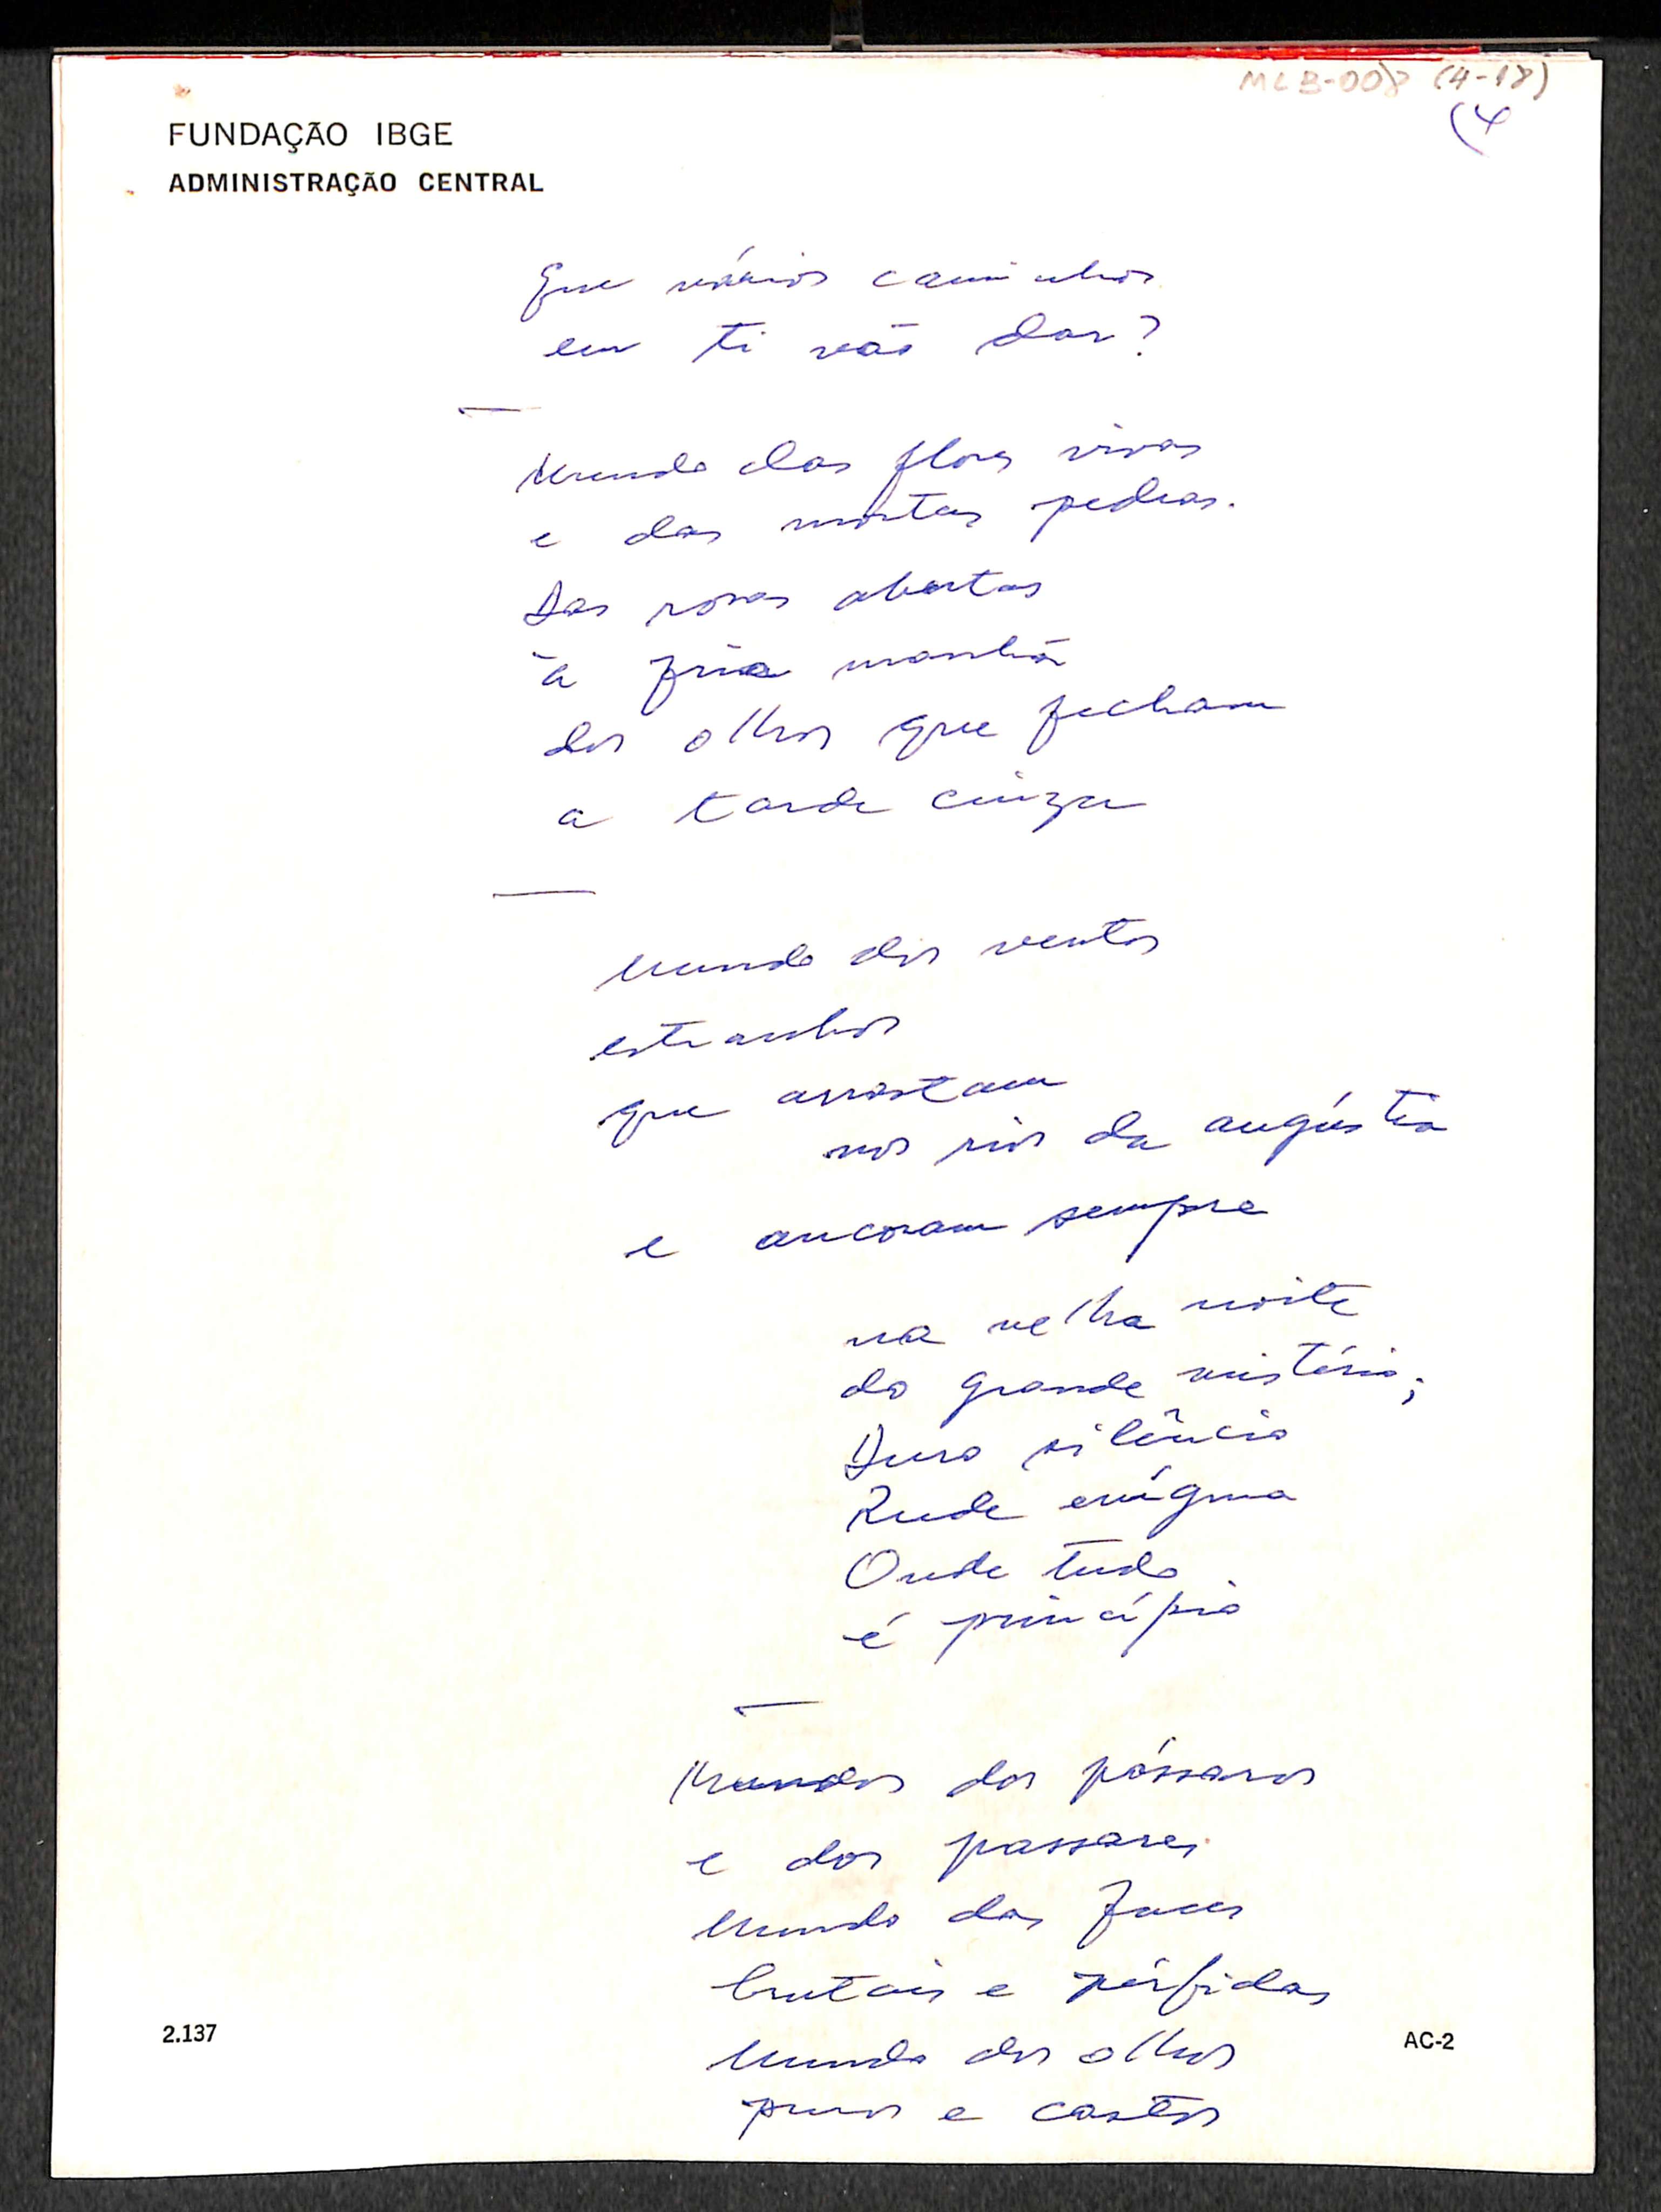 MLB-008 (4-18)
(4
FUNDAÇÃO IBGE
ADMINISTRAÇÃO CENTRAL
Que vários caminhos
em ti vão dar?
Mundo das flores vivas
e das mortas pedras.
Das rosas abertas
à fria manhã
dos olhos que fecham
a tarde cinza
Mundo dos ventos
estranhos
que arrastam
nos rios da angústia
e ancoram sempre
na velha noite
do grande mistério;
Duro silêncio
Rude enígma
Onde tudo
é princípio
Mundos dos pássaros
e dos passares
Mundo das faces
brutais e pérfidas
Mundo dos olhos
puros e castos
2.137
AC-2